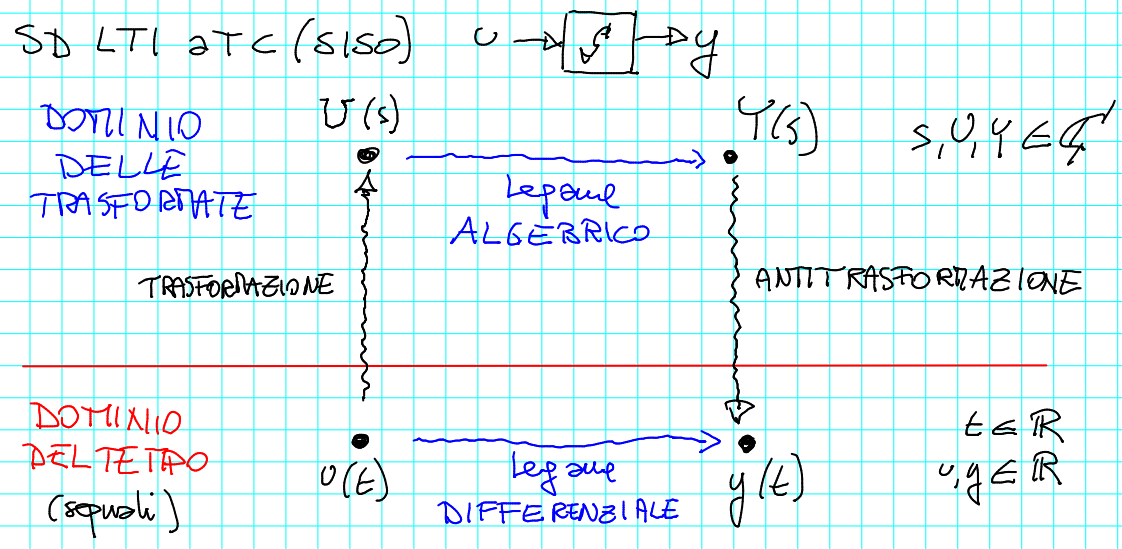 SD LTI a TC (SISO) u → S → y
DOMINIO
DELLE
TRASFORMATE
U(s)
Y(s)
s, U, Y ∈ ℂ
Legame
ALGEBRICO
TRASFORMAZIONE
ANTITRASFORMAZIONE
DOMINIO
DEL TEMPO
(segnali)
u(t)
Legame
DIFFERENZIALE
y(t)
t ∈ ℝ
u, y ∈ ℝ